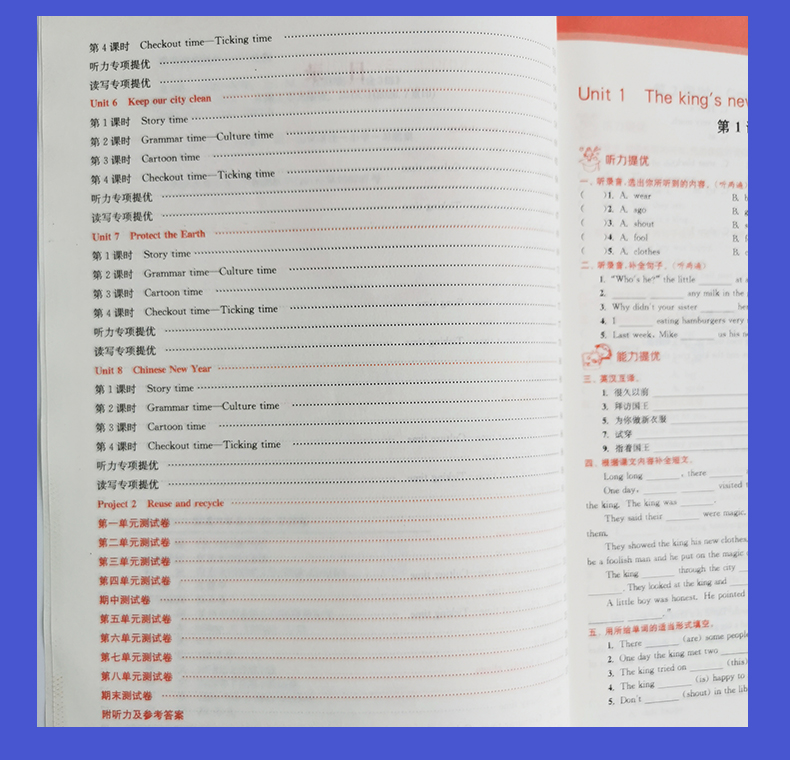 第4课时 Checkout time—Ticking time
听力专项提优
读写专项提优
Unit 6 Keep our city clean
第1课时 Story time
第2课时 Grammar time—Culture time
第3课时 Cartoon time
第4课时 Checkout time—Ticking time
听力专项提优
读写专项提优
Unit 7 Protect the Earth
第1课时 Story time
第2课时 Grammar time—Culture time
第3课时 Cartoon time
第4课时 Checkout time—Ticking time
听力专项提优
读写专项提优
Unit 8 Chinese New Year
第1课时 Story time
第2课时 Grammar time—Culture time
第3课时 Cartoon time
第4课时 Checkout time—Ticking time
听力专项提优
读写专项提优
Project 2 Reuse and recycle
第一单元测试卷
第二单元测试卷
第三单元测试卷
第四单元测试卷
期中测试卷
第五单元测试卷
第六单元测试卷
第七单元测试卷
第八单元测试卷
期末测试卷
附听力及参考答案
Unit 1 The king's new
第1
听力提优
一、听录音,选出你所听到的内容。(听两遍)
( )1. A. wear B.
( )2. A. ago B.
( )3. A. shout B.
( )4. A. fool B.
( )5. A. clothes B.
二、听录音,补全句子。(听两遍)
1. "Who's he?" the little ______ at
2. ______ ______ any milk in the
3. Why didn't your sister ______
4. I ______ eating hamburgers very
5. Last week, Mike ______ us his
能力提优
三、英汉互译。
1. 很久以前
3. 拜访国王
5. 为你做新衣服
7. 试穿
9. 指着国王
四、根据课文内容补全短文。
Long long ______, there ______
One day, ______ ______ visited
the king. The king was ______.
They said their ______ were magic.
them.
They showed the king his new clothes.
be a foolish man and he put on the magic
The king ______ through the city
______. They looked at the king and ______
A little boy was honest. He pointed
______ ______."
五、用所给单词的适当形式填空。
1. There ______ (are) some people
2. One day the king met two ______
3. The king tried on ______ (this)
4. The king ______ (is) happy to
5. Don't ______ (shout) in the